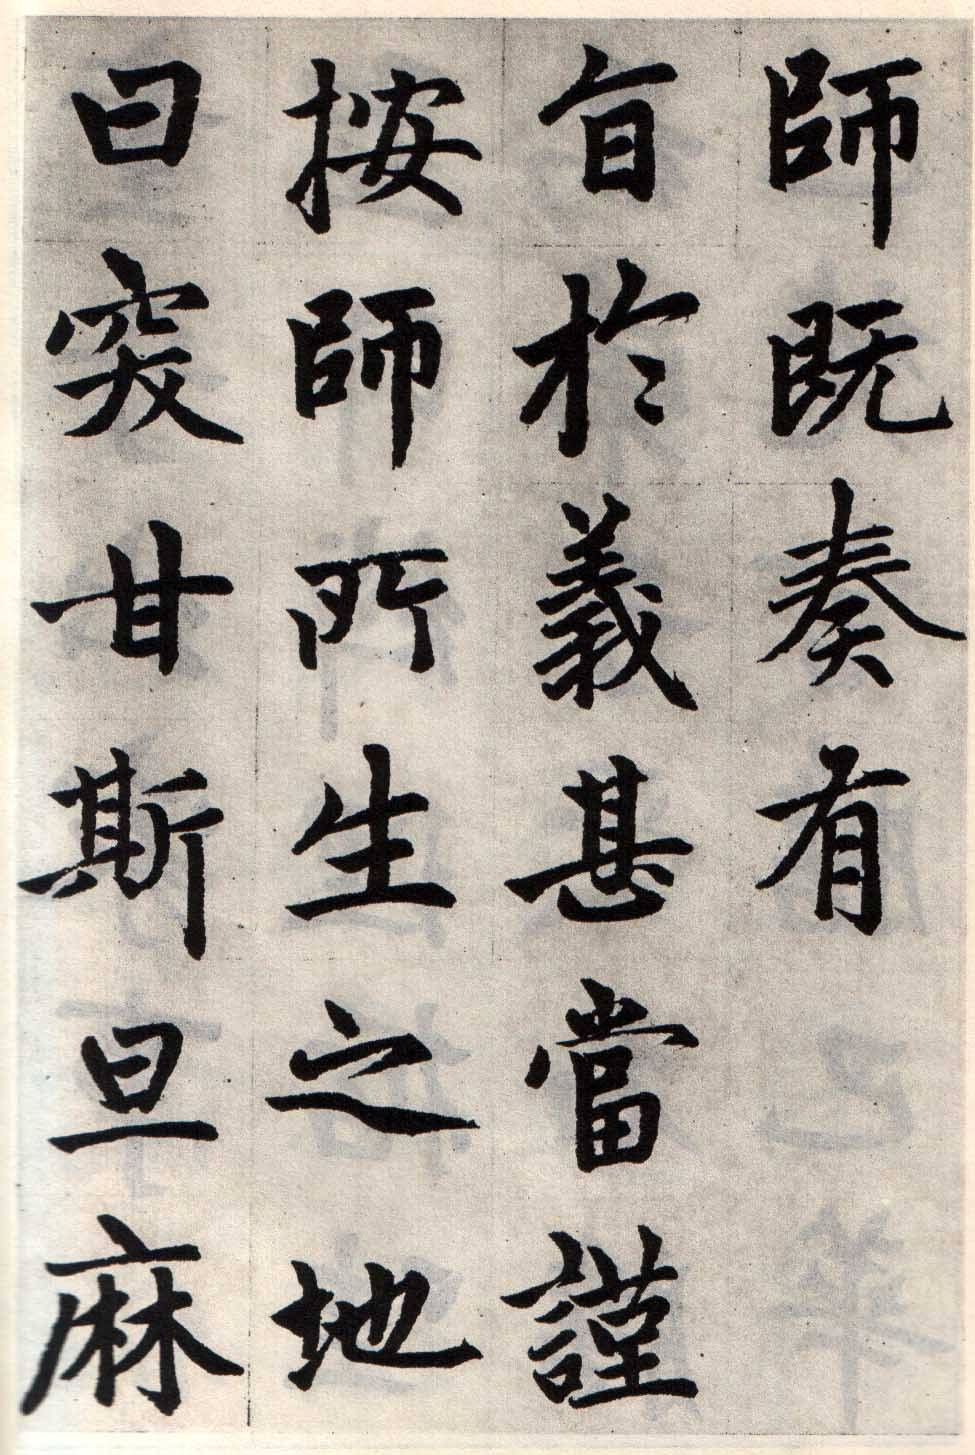 師既奏有
旨於義甚當謹
按師所生之地
曰突甘斯旦麻